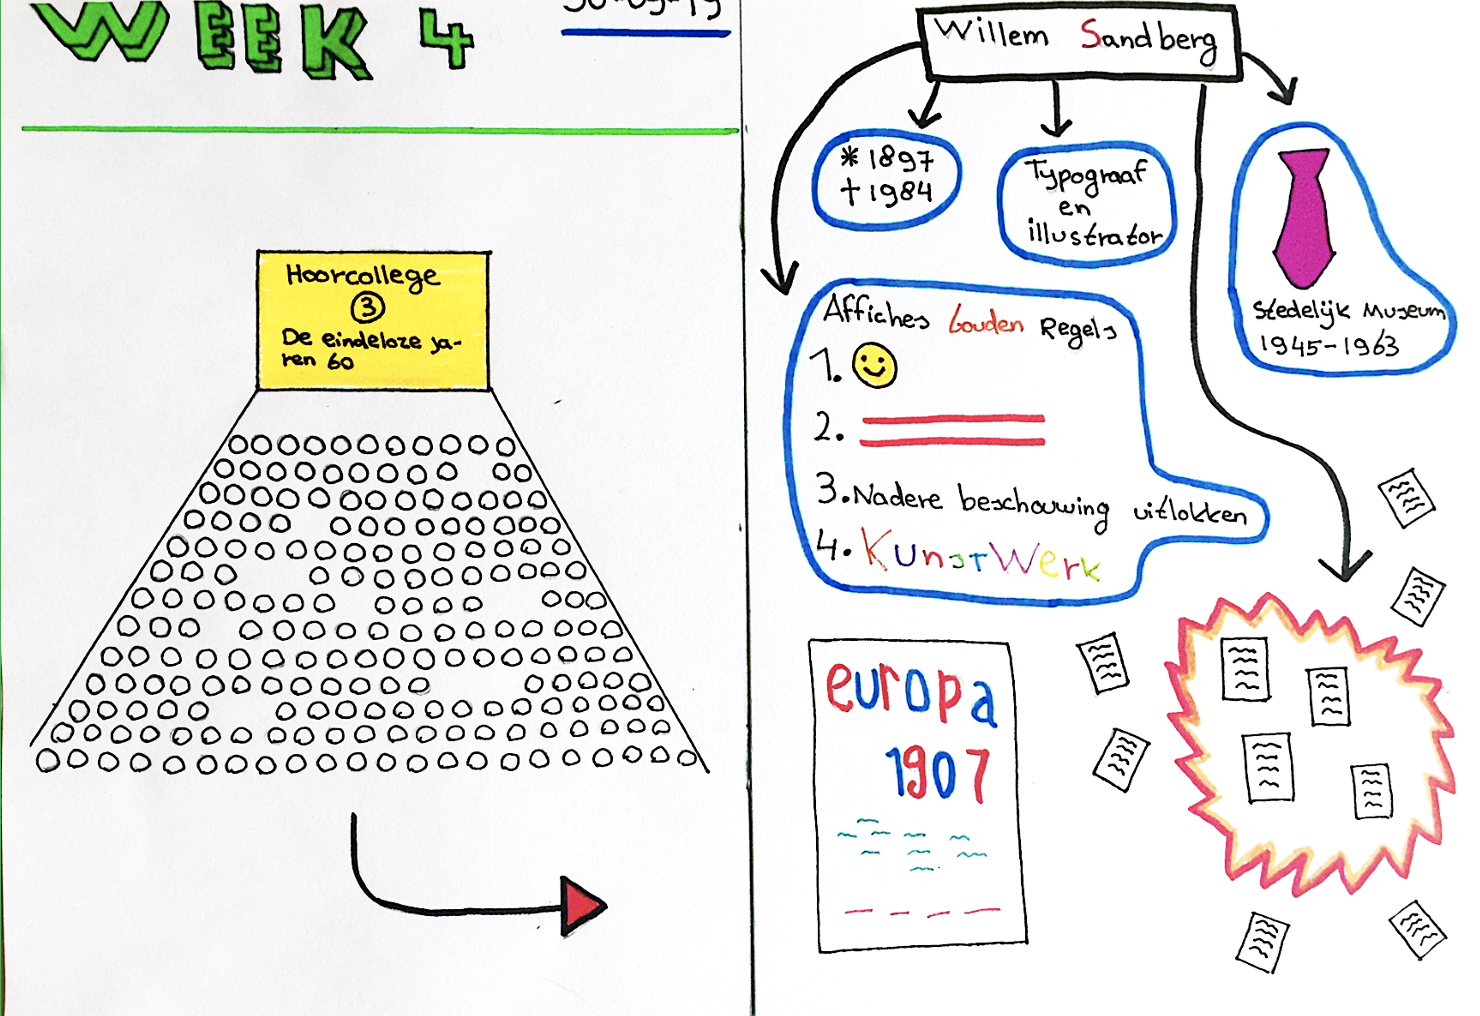 WEEK 4
30-09-19
Hoorcollege
3
De eindeloze ja-
ren 60
Willem Sandberg
* 1897
† 1984
Typograaf
en
illustrator
Stedelijk Museum
1945-1963
Affiches Gouden Regels
1.
2.
3. Nadere beschouwing uitlokken
4. KUnsTWerk
europa
1907